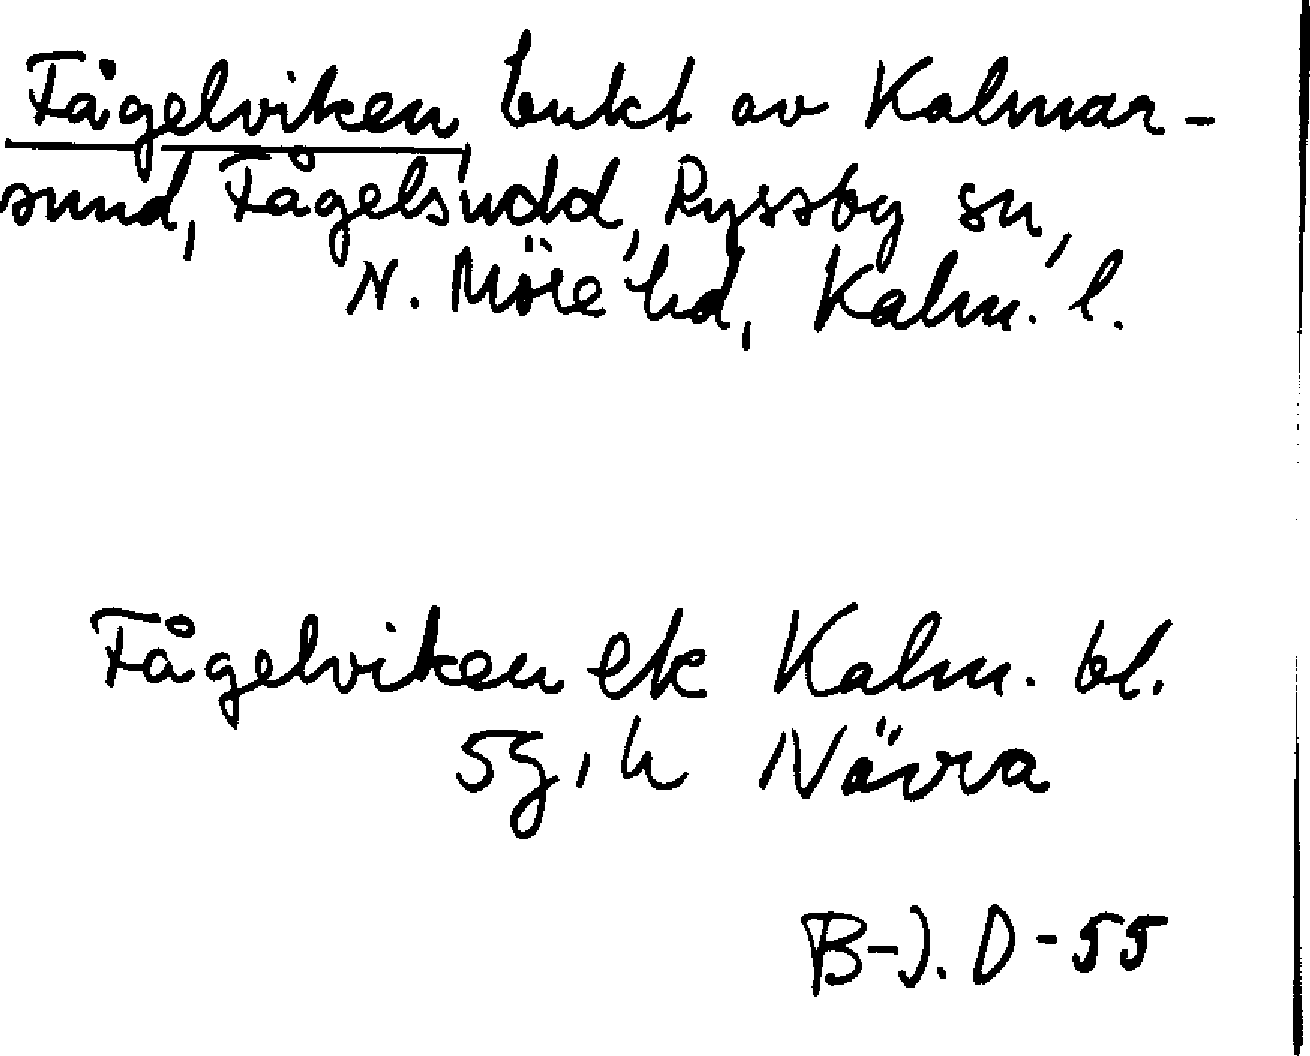 Fågelviken, bukt av Kalmar-
sund, Fågelsudd, Ryssby sn,
N. Möre hd, Kalm. l.
Fågelviken ek Kalm. bl.
5g, h Nävra
B-J. D-55